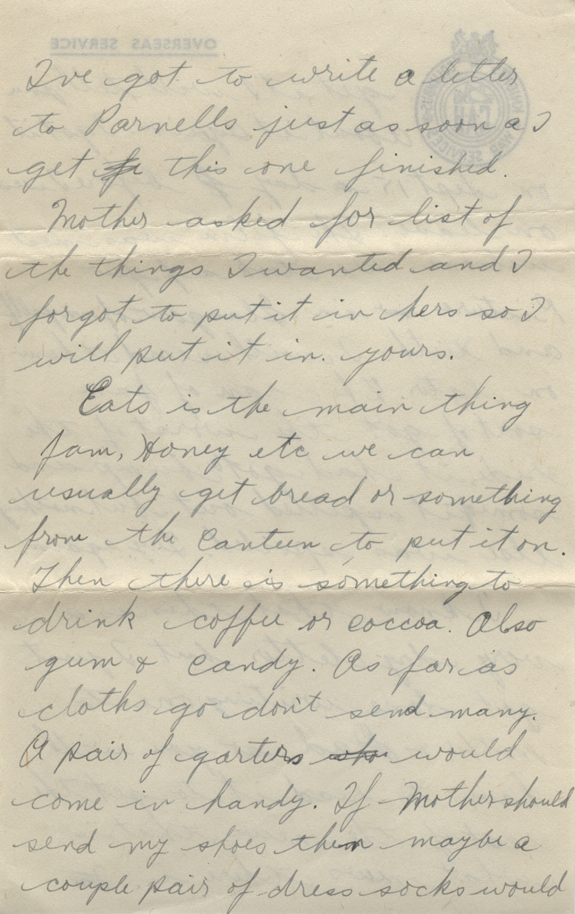 OVERSEAS SERVICE
I've got to write a letter
to Parnells just as soon as I
get this one finished.
Mother asked for list of
the things I wanted and I
forgot to put it in hers so I
will put it in. yours.
Eats is the main thing
Jam, Honey etc we can
usually get bread or something
from the canteen to put it on.
Then there is something to
drink coffee or coccoa. Also
gum & candy. As far as
cloths go don't send many.
A pair of garters would
come in handy. If Mother should
send my shoes then maybe a
couple pair of dress socks would